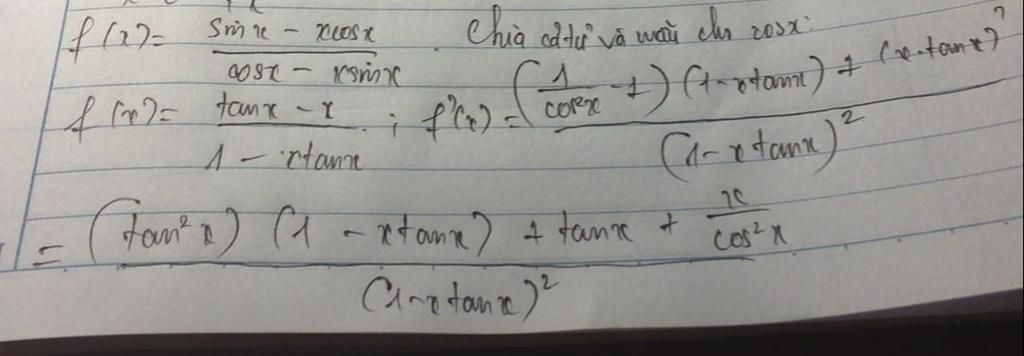 f(x) = (sin x - x cos x) / (cos x - x sin x) . Chia cả tử và mẫu cho cos x:
f(x) = (tan x - x) / (1 - x tan x) ; f'(x) = ((1/cos²x - 1)(1 - x tan x) + (x - tan x)') / (1 - x tan x)²
= ((tan²x)(1 - x tan x) + tan x + x/cos²x) / (1 - x tan x)²